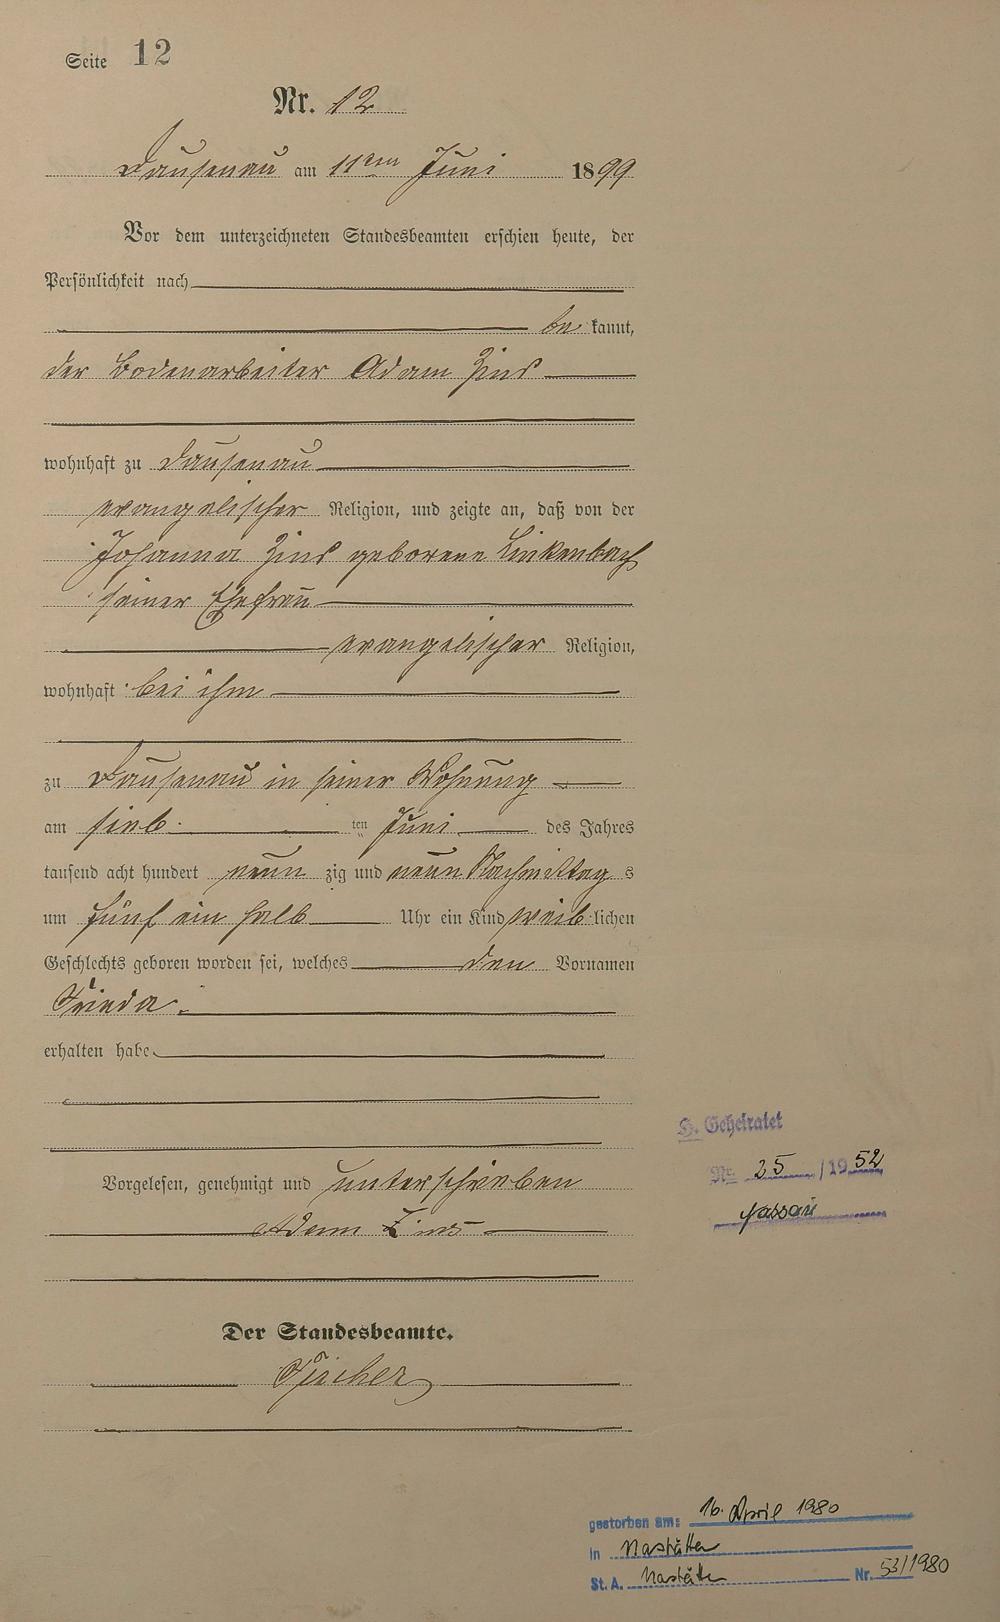 Seite 12
Nr. 12
Dausenau am 11ten Juni 1899
Vor dem unterzeichneten Standesbeamten erschien heute, der
Persönlichkeit nach
be kannt,
der Bodenarbeiter Adam Zins
wohnhaft zu Dausenau
evangelischer Religion, und zeigte an, daß von der
Johanna Zins geborene Linkenbach
seiner Ehefrau
evangelischer Religion,
wohnhaft bei ihm
zu Dausenau in seiner Wohnung
am sieb ten Juni des Jahres
tausend acht hundert neun zig und neun Nachmittag s
um fünf ein halb Uhr ein Kind weib lichen
Geschlechts geboren worden sei, welches den Vornamen
Frieda.
erhalten habe.
Vorgelesen, genehmigt und unterschrieben
Adam Zins
Der Standesbeamte.
H. Geheiratet
Nr. 25 /1952
Nassau
gestorben am: 16. April 1980
in Nastätten
St. A. Nastätten Nr. 53/1980